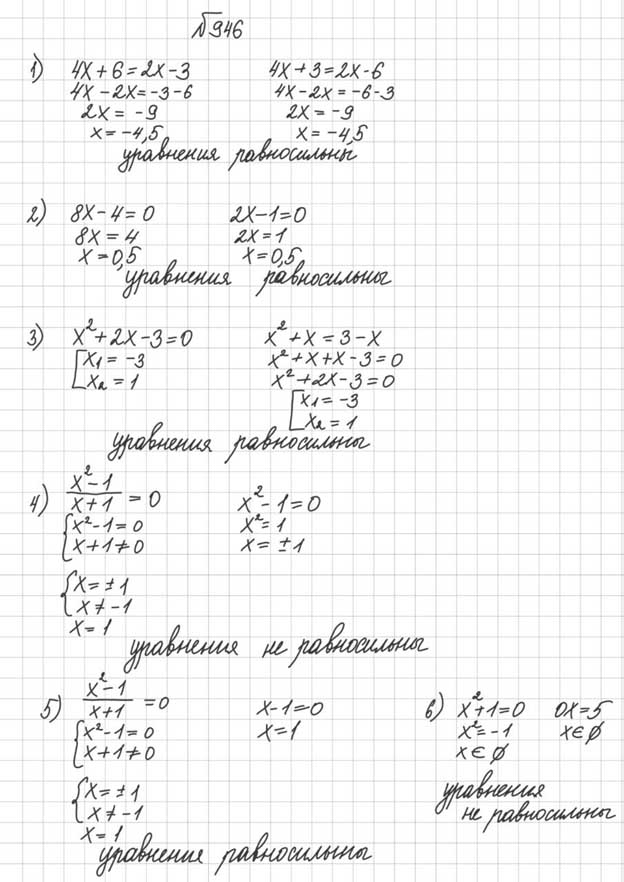 №946
1) 4x + 6 = 2x - 3    4x + 3 = 2x - 6
4x - 2x = -3 - 6    4x - 2x = -6 - 3
2x = -9    2x = -9
x = -4,5    x = -4,5
уравнения равносильны
2) 8x - 4 = 0    2x - 1 = 0
8x = 4    2x = 1
x = 0,5    x = 0,5
уравнения равносильны
3) x² + 2x - 3 = 0    x² + x = 3 - x
[x₁ = -3    x² + x + x - 3 = 0
x₂ = 1    x² + 2x - 3 = 0
[x₁ = -3
x₂ = 1
уравнения равносильны
4) (x² - 1)/(x + 1) = 0    x² - 1 = 0
{x² - 1 = 0    x² = 1
x + 1 ≠ 0    x = ±1
{x = ±1
x ≠ -1
x = 1
уравнения не равносильны
5) (x² - 1)/(x + 1) = 0    x - 1 = 0
{x² - 1 = 0    x = 1
x + 1 ≠ 0
{x = ±1
x ≠ -1
x = 1
уравнение равносильны
6) x² + 1 = 0    0x = 5
x² = -1    x ∈ ∅
x ∈ ∅
уравнения
не равносильны